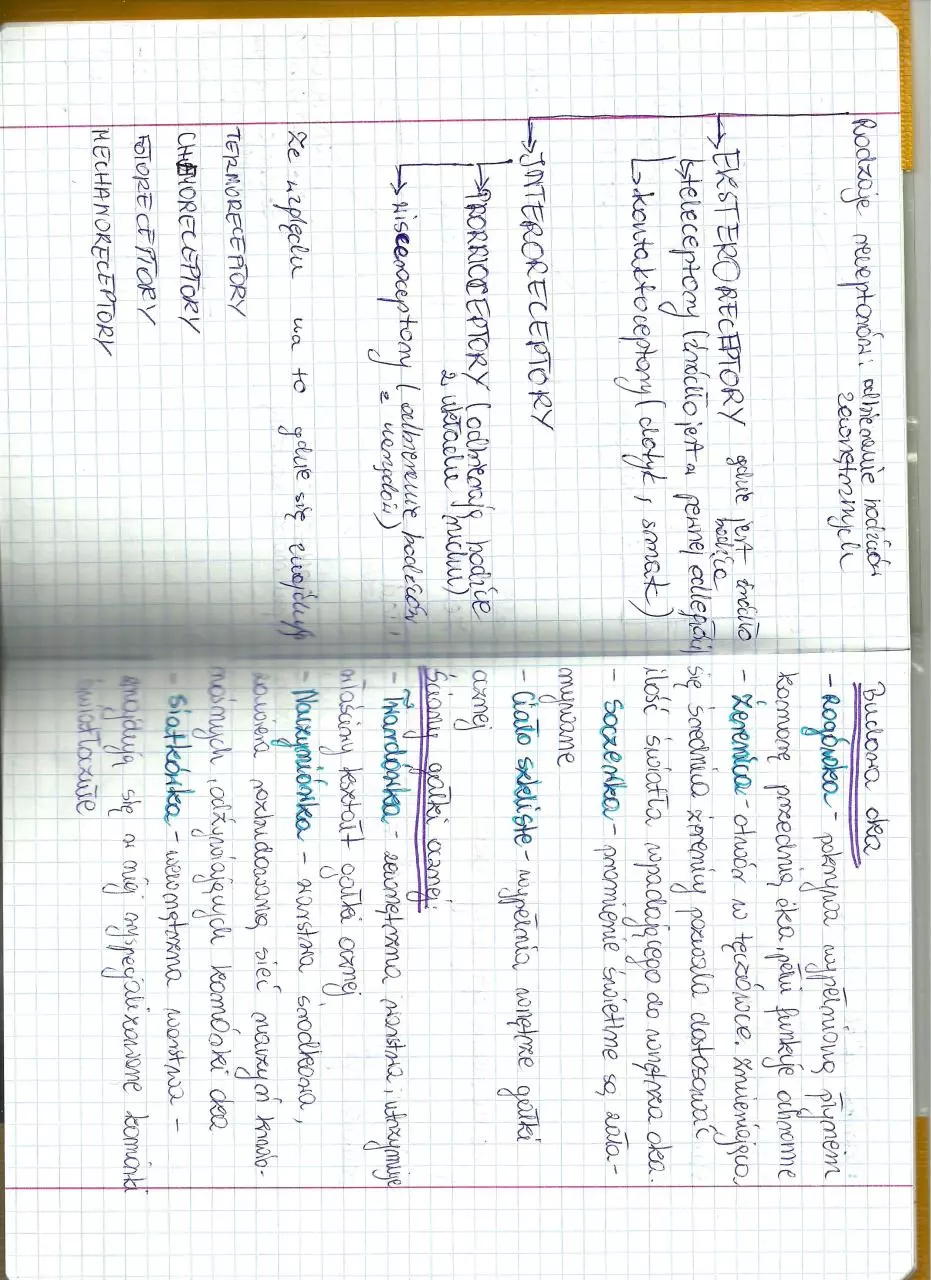 Rodzaje receptorów: odbieranie bodźców
zewnętrznych
EKSTERORECEPTORY gdzie jest źródło
bodźca
telereceptory (źródło jest w pewnej odległości)
kontaktoceptory (dotyk, smak)
INTERORECEPTORY
PROPRIOCEPTORY (odbierają bodźce
z układu ruchu)
wisceroceptory (odbieranie bodźców
z narządów)
Ze względu na to gdzie się znajdują
TERMORECEPTORY
CHEMORECEPTORY
FOTORECEPTORY
MECHANORECEPTORY
Budowa oka
- Rogówka - pokrywa wypełnioną płynem
komorę przednią oka, pełni funkcje ochronne
- Źrenica - otwór w tęczówce. Zmieniająca
się średnica źrenicy pozwala dostosować
ilość światła wpadającego do wnętrza oka.
- Soczewka - promienie świetlne są zała-
mywane
- Ciało szkliste - wypełnia wnętrze gałki
ocznej
Ściany gałki ocznej:
- Twardówka - zewnętrzna warstwa, utrzymuje
właściwy kształt gałki ocznej
- Naczyniówka - warstwa środkowa,
zawiera rozbudowaną sieć naczyń krwio-
nośnych, odżywiających komórki oka
- Siatkówka - wewnętrzna warstwa -
znajdują się w niej wyspecjalizowane komórki
światłoczułe